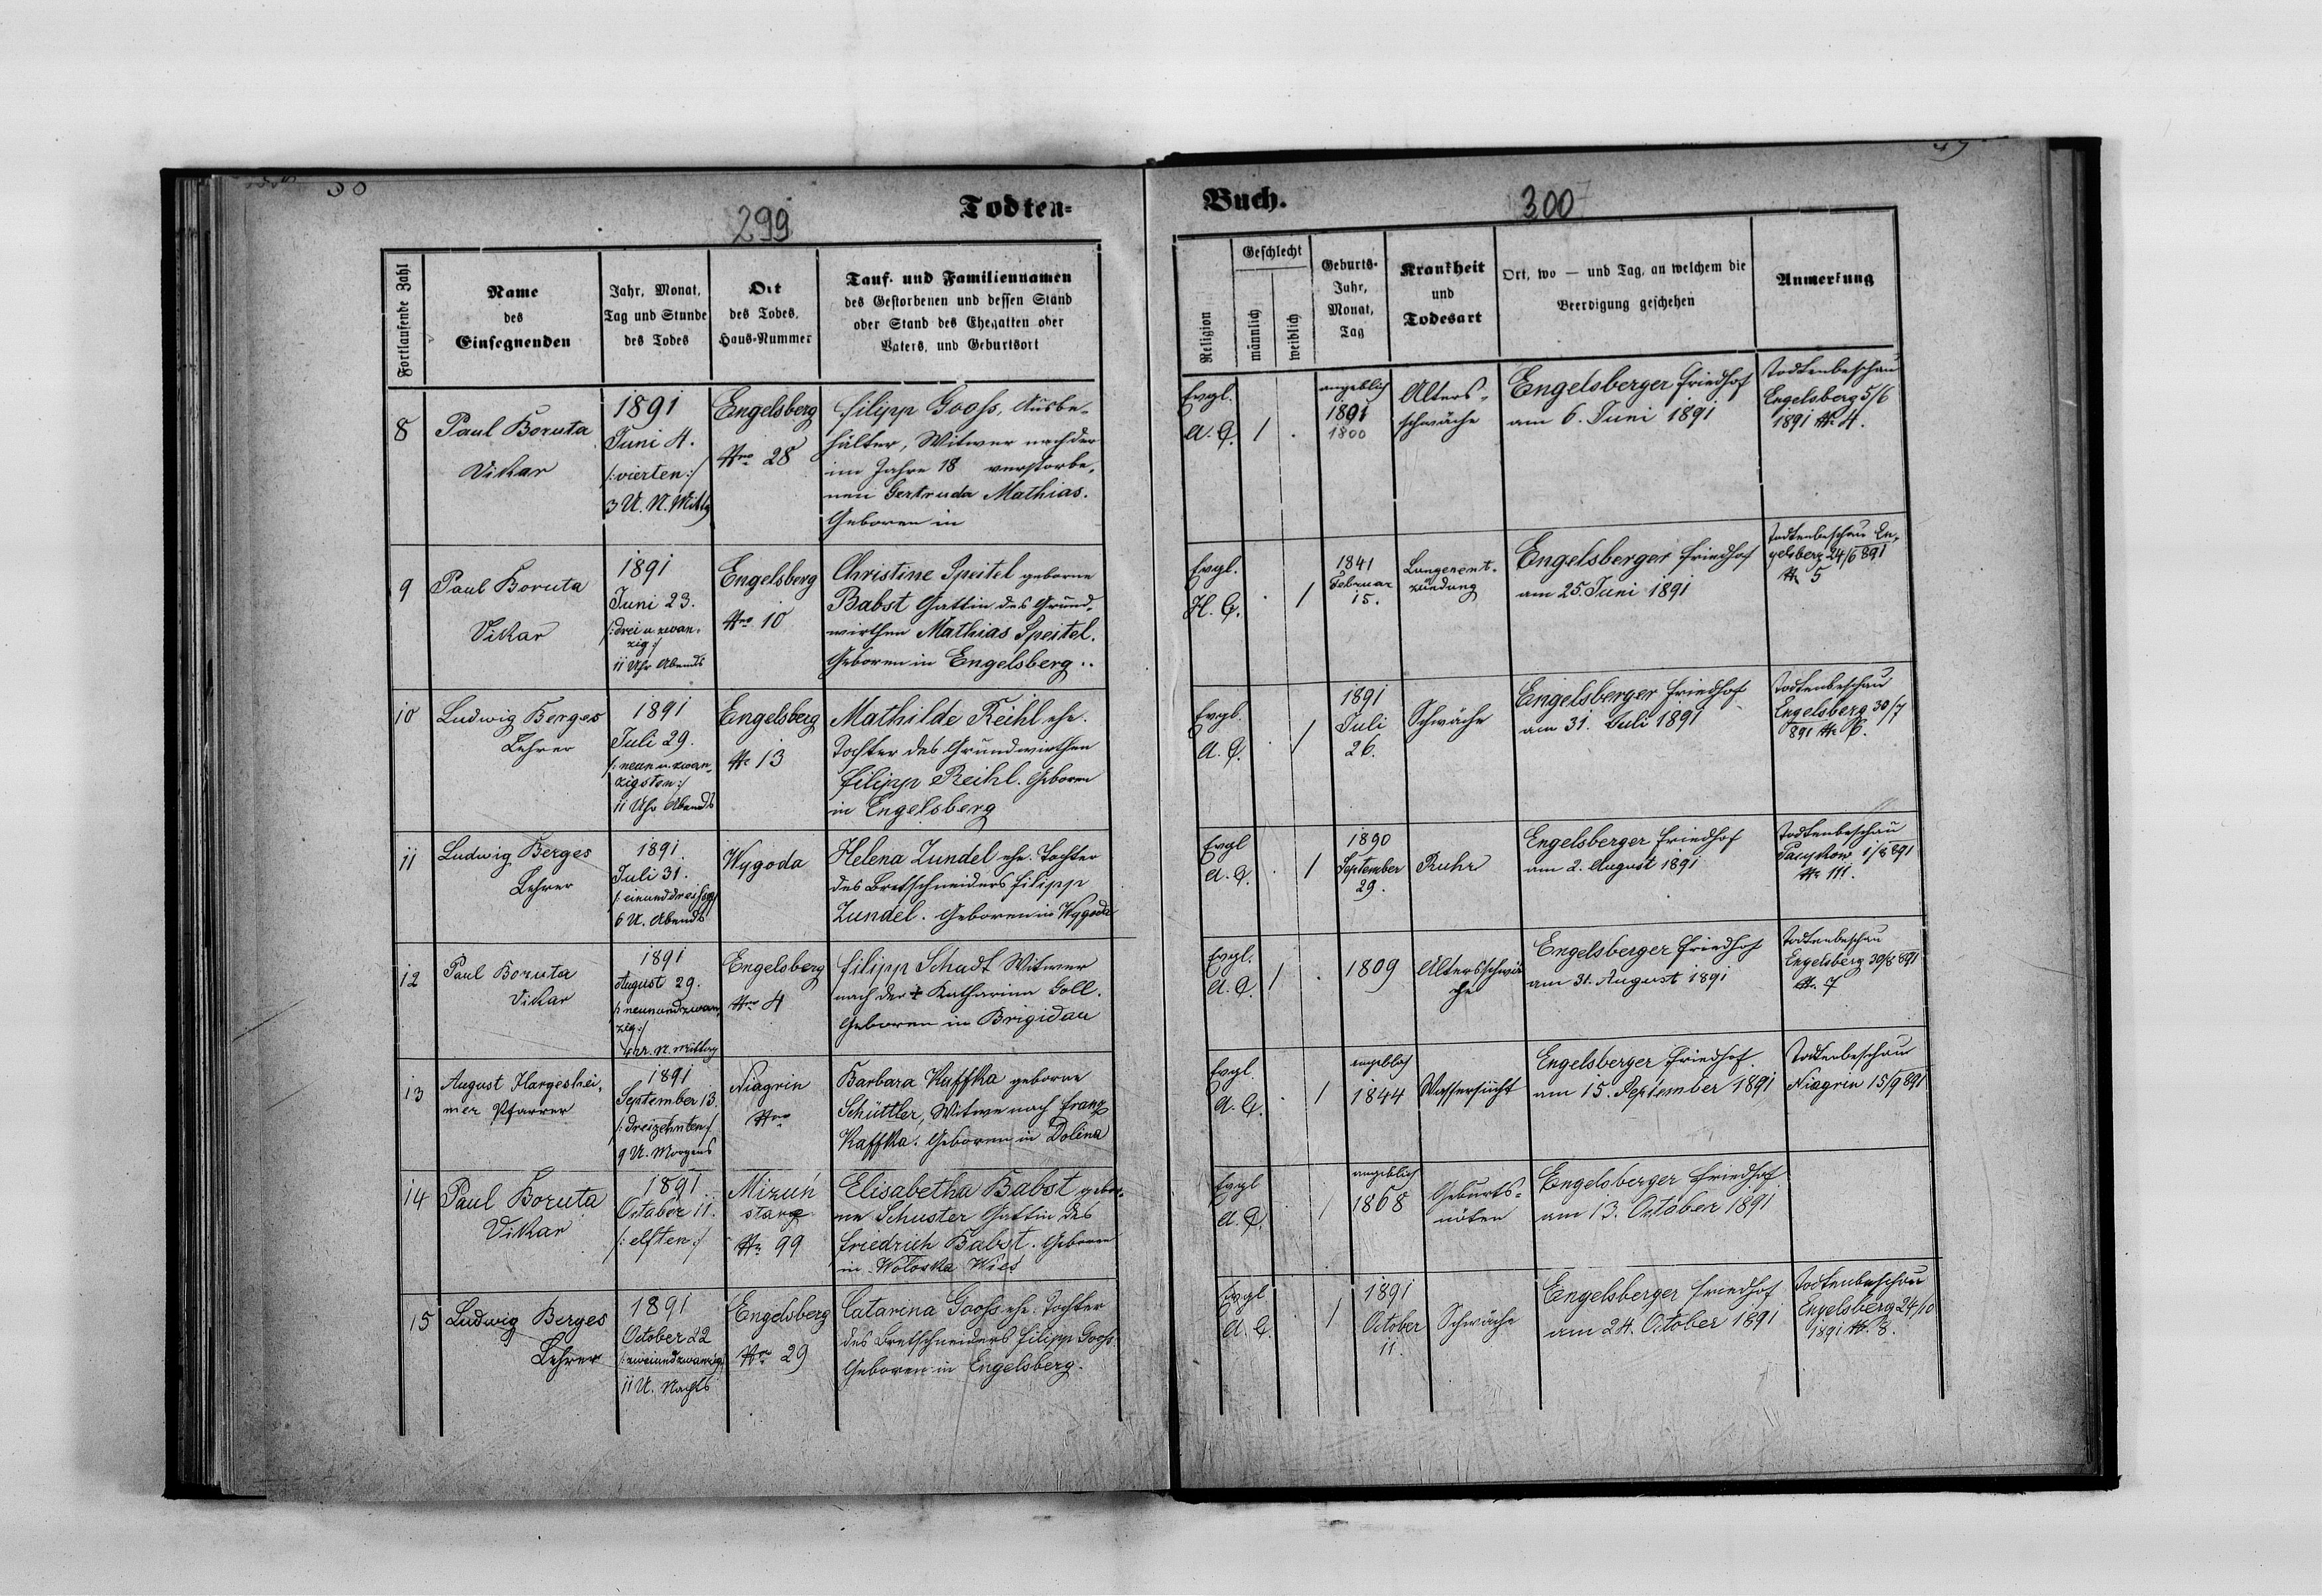 299
Todten=
Fortlaufende Zahl
Name
des
Einsegnenden
Jahr, Monat,
Tag und Stunde
des Todes
Ort
des Todes,
Haus-Nummer
Tauf- und Familiennamen
des Gestorbenen und dessen Stand
oder Stand des Ehegatten oder
Vaters, und Geburtsort
8
Paul Boruta
Vikar
1891
Juni 4.
/:vierten:/
3 U. N. Mittg
Engelsberg
Nro 28
Filipp Gooss, Ausbe-
hälter, Witwer nach der
im Jahre 18 verstorbe-
nen Gertruda Mathias.
Geboren in
9
Paul Boruta
Vikar
1891
Juni 23.
/:drei u. zwan-
zig:/
11 Uhr Abends
Engelsberg
Nro 10
Christine Speitel geborne
Babst Gattin des Grund-
wirthen Mathias Speitel.
Geboren in Engelsberg..
10
Ludwig Berges
Lehrer
1891
Juli 29.
/:neun u. zwan-
zigsten:/
11 Uhr Abends
Engelsberg
Nr 13
Mathilde Reihl ehe.
Tochter des Grundwirthen
Filipp Reihl. Geboren
in Engelsberg
11
Ludwig Berges
Lehrer
1891.
Juli 31.
/:einunddreissig:/
6 U. Abends
Wygoda
Helena Zundel ehe. Tochter
des Bretschneiders Filipp
Zundel. Geboren in Wygoda
12
Paul Boruta
Vikar
1891
August 29.
/:neunundzwan-
zig:/
4 Ur. N. Mittag
Engelsberg
Nro 4
Filipp Schadt Witwer
nach der ‡ Katharina Goll.
Geboren in Brigidau
13
August Hargeshei-
mer Pfarrer
1891
September 13.
/:dreizehnten:/
9 U. Morgens
Niagrin
Nro
Barbara Kaffka geborne
Schüttler, Witwe nach Franz
Kaffka. Geboren in Dolina
14
Paul Boruta
Vikar
1891
October 11.
/:elften:/
Mizuń
stary
Nr. 99
Elisabetha Babst gebor-
ne Schuster Gattin des
Friedrich Babst. Geboren
in Wołoska Wieś
15
Ludwig Berges
Lehrer
1891
October 22
/:zweiundzwanzig:/
11 U. Nachts
Engelsberg
Nro 29
Catarina Gooss ehe. Tochter
des Bretschneiders Filipp Gooss
Geboren in Engelsberg.
Buch.
300
Religion
Geschlecht
männlich
weiblich
Geburts-
Jahr,
Monat,
Tag
Krankheit
und
Todesart
Ort, wo — und Tag, an welchem die
Beerdigung geschehen
Anmerkung
Evgl.
A. C.
/
.
angeblich
1891
1800
Alters-
schwäche
Engelsberger Friedhof
am 6. Juni 1891
Todtenbeschau
Engelsberg 5/6
1891 Nr 4.
Evgl.
H. C.
.
/
1841
Februar
15.
Lungenent-
zündung
Engelsberger Friedhof
am 25. Juni 1891
Todtenbeschau En-
gelsberg 24/6 891
Nr 5
Evgl.
A. C.
.
/
1891
Juli
26.
Schwäche
Engelsberger Friedhof
am 31. Juli 1891
Todtenbeschau
Engelsberg 30/7
891 Nr 6.
Evgl
A. C.
.
/
1890
September
29.
Ruhr
Engelsberger Friedhof
am 2. August 1891
Todtenbeschau
Pacykow 1/8 891
Nr 111.
Evgl.
A. C.
/
.
1809
Altersschwä-
che
Engelsberger Friedhof
am 31. August 1891
Todtenbeschau
Engelsberg 30/8 891
Nr. 7
Evgl.
A. C.
.
/
angeblich
1844
Wassersucht
Engelsberger Friedhof.
am 15. September 1891
Todtenbeschau
Niagrin 15/9 891
Evgl
A. C.
.
/
angeblich
1868
Geburts-
nöten
Engelsberger Friedhof
am 13. October 1891
Evgl
A. C.
.
/
1891
October
11.
Schwäche
Engelsberger Friedhof
am 24. October 1891
Todtenbeschau
Engelsberg 24/10
1891 Nr. 8.